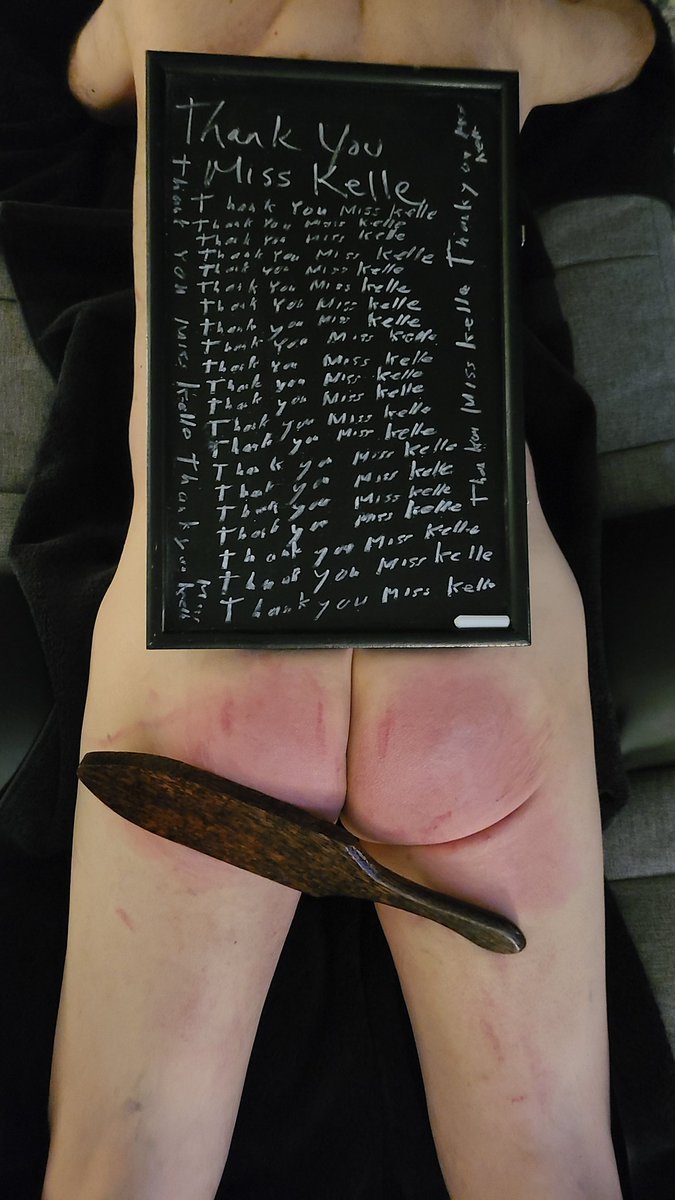 Thank You
Miss Kelle
Thank You Miss Kelle
Thank You Miss Kelle
Thank You Miss Kelle
Thank You Miss Kelle
Thank you Miss Kelle
Thank You Miss Kelle
Thank You Miss Kelle
Thank you Miss Kelle
Thank You Miss Kelle
Thank You Miss Kelle
Thank you Miss Kelle
Thank you Miss Kelle
Thank you Miss Kelle
Thank you Miss Kelle
Thank you Miss Kelle
Thank you Miss Kelle
Thank you Miss Kelle
Thank you Miss Kelle
Thank you Miss Kelle
Thank you Miss Kelle
Thank you Miss Kelle
Thank you Miss Kelle Thank you Miss Kelle
Thank you Miss Kelle Thank you